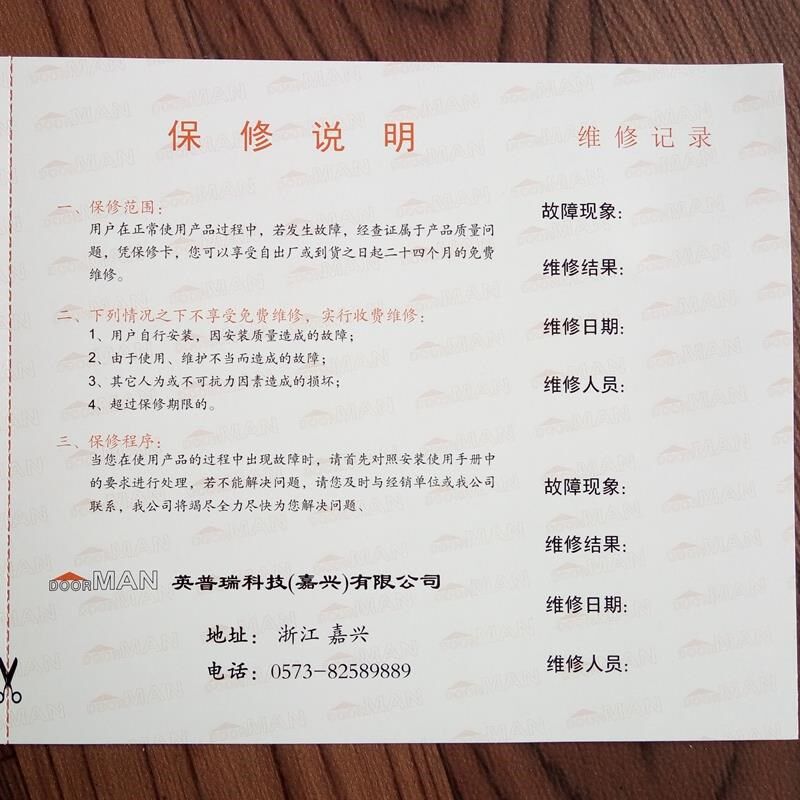 保修说明
一、保修范围：
用户在正常使用产品过程中，若发生故障，经查证属于产品质量问
题，凭保修卡，您可以享受自出厂或到货之日起二十四个月的免费
维修。
二、下列情况之下不享受免费维修，实行收费维修：
1、用户自行安装，因安装质量造成的故障；
2、由于使用、维护不当而造成的故障；
3、其它人为或不可抗力因素造成的损坏；
4、超过保修期限的。
三、保修程序：
当您在使用产品的过程中出现故障时，请首先对照安装使用手册中
的要求进行处理，若不能解决问题，请您及时与经销单位或我公司
联系，我公司将竭尽全力尽快为您解决问题、
DOORMAN 英普瑞科技(嘉兴)有限公司
地址： 浙江 嘉兴
电话：0573-82589889
维修记录
故障现象:
维修结果:
维修日期:
维修人员:
故障现象:
维修结果:
维修日期:
维修人员: